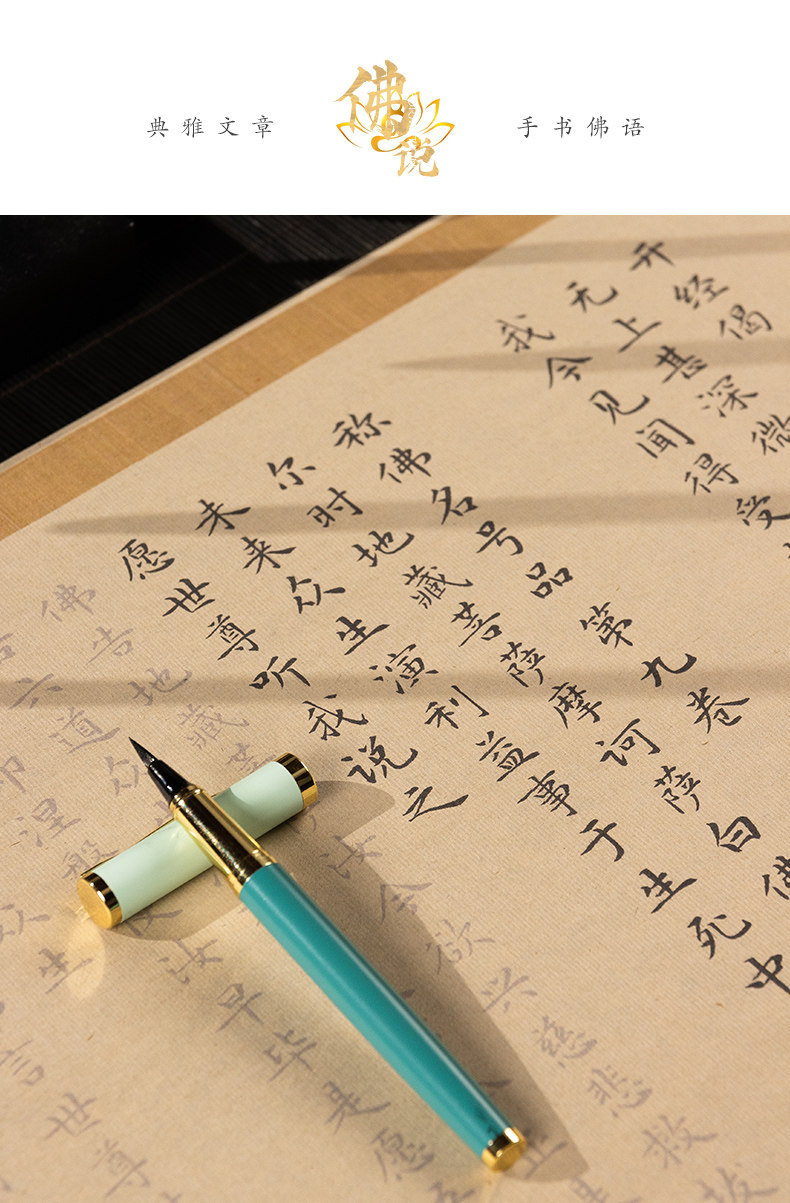 典雅文章
佛说
手书佛语
开经偈
无上甚深微
我今见闻得受
称佛名号品第九卷
尔时地藏菩萨摩诃萨白佛
未来众生演利益事于生死中
愿世尊听我说之
佛告地藏菩萨汝今欲兴慈悲救拔
六道众
涅
汝早毕是愿
众生
言世尊